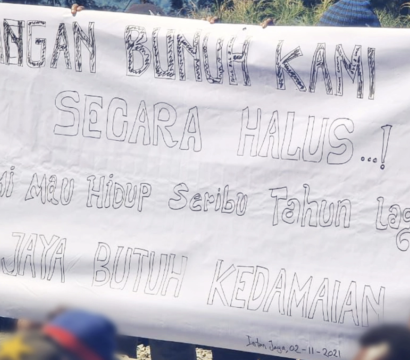 NGAN BUNUH KAMI
SEGARA HALUS...!
mi Mau Hidup Seribu Tahun Lag
JAYA BUTUH KEDAMAIAN
Intan Jaya, 02-11-2021